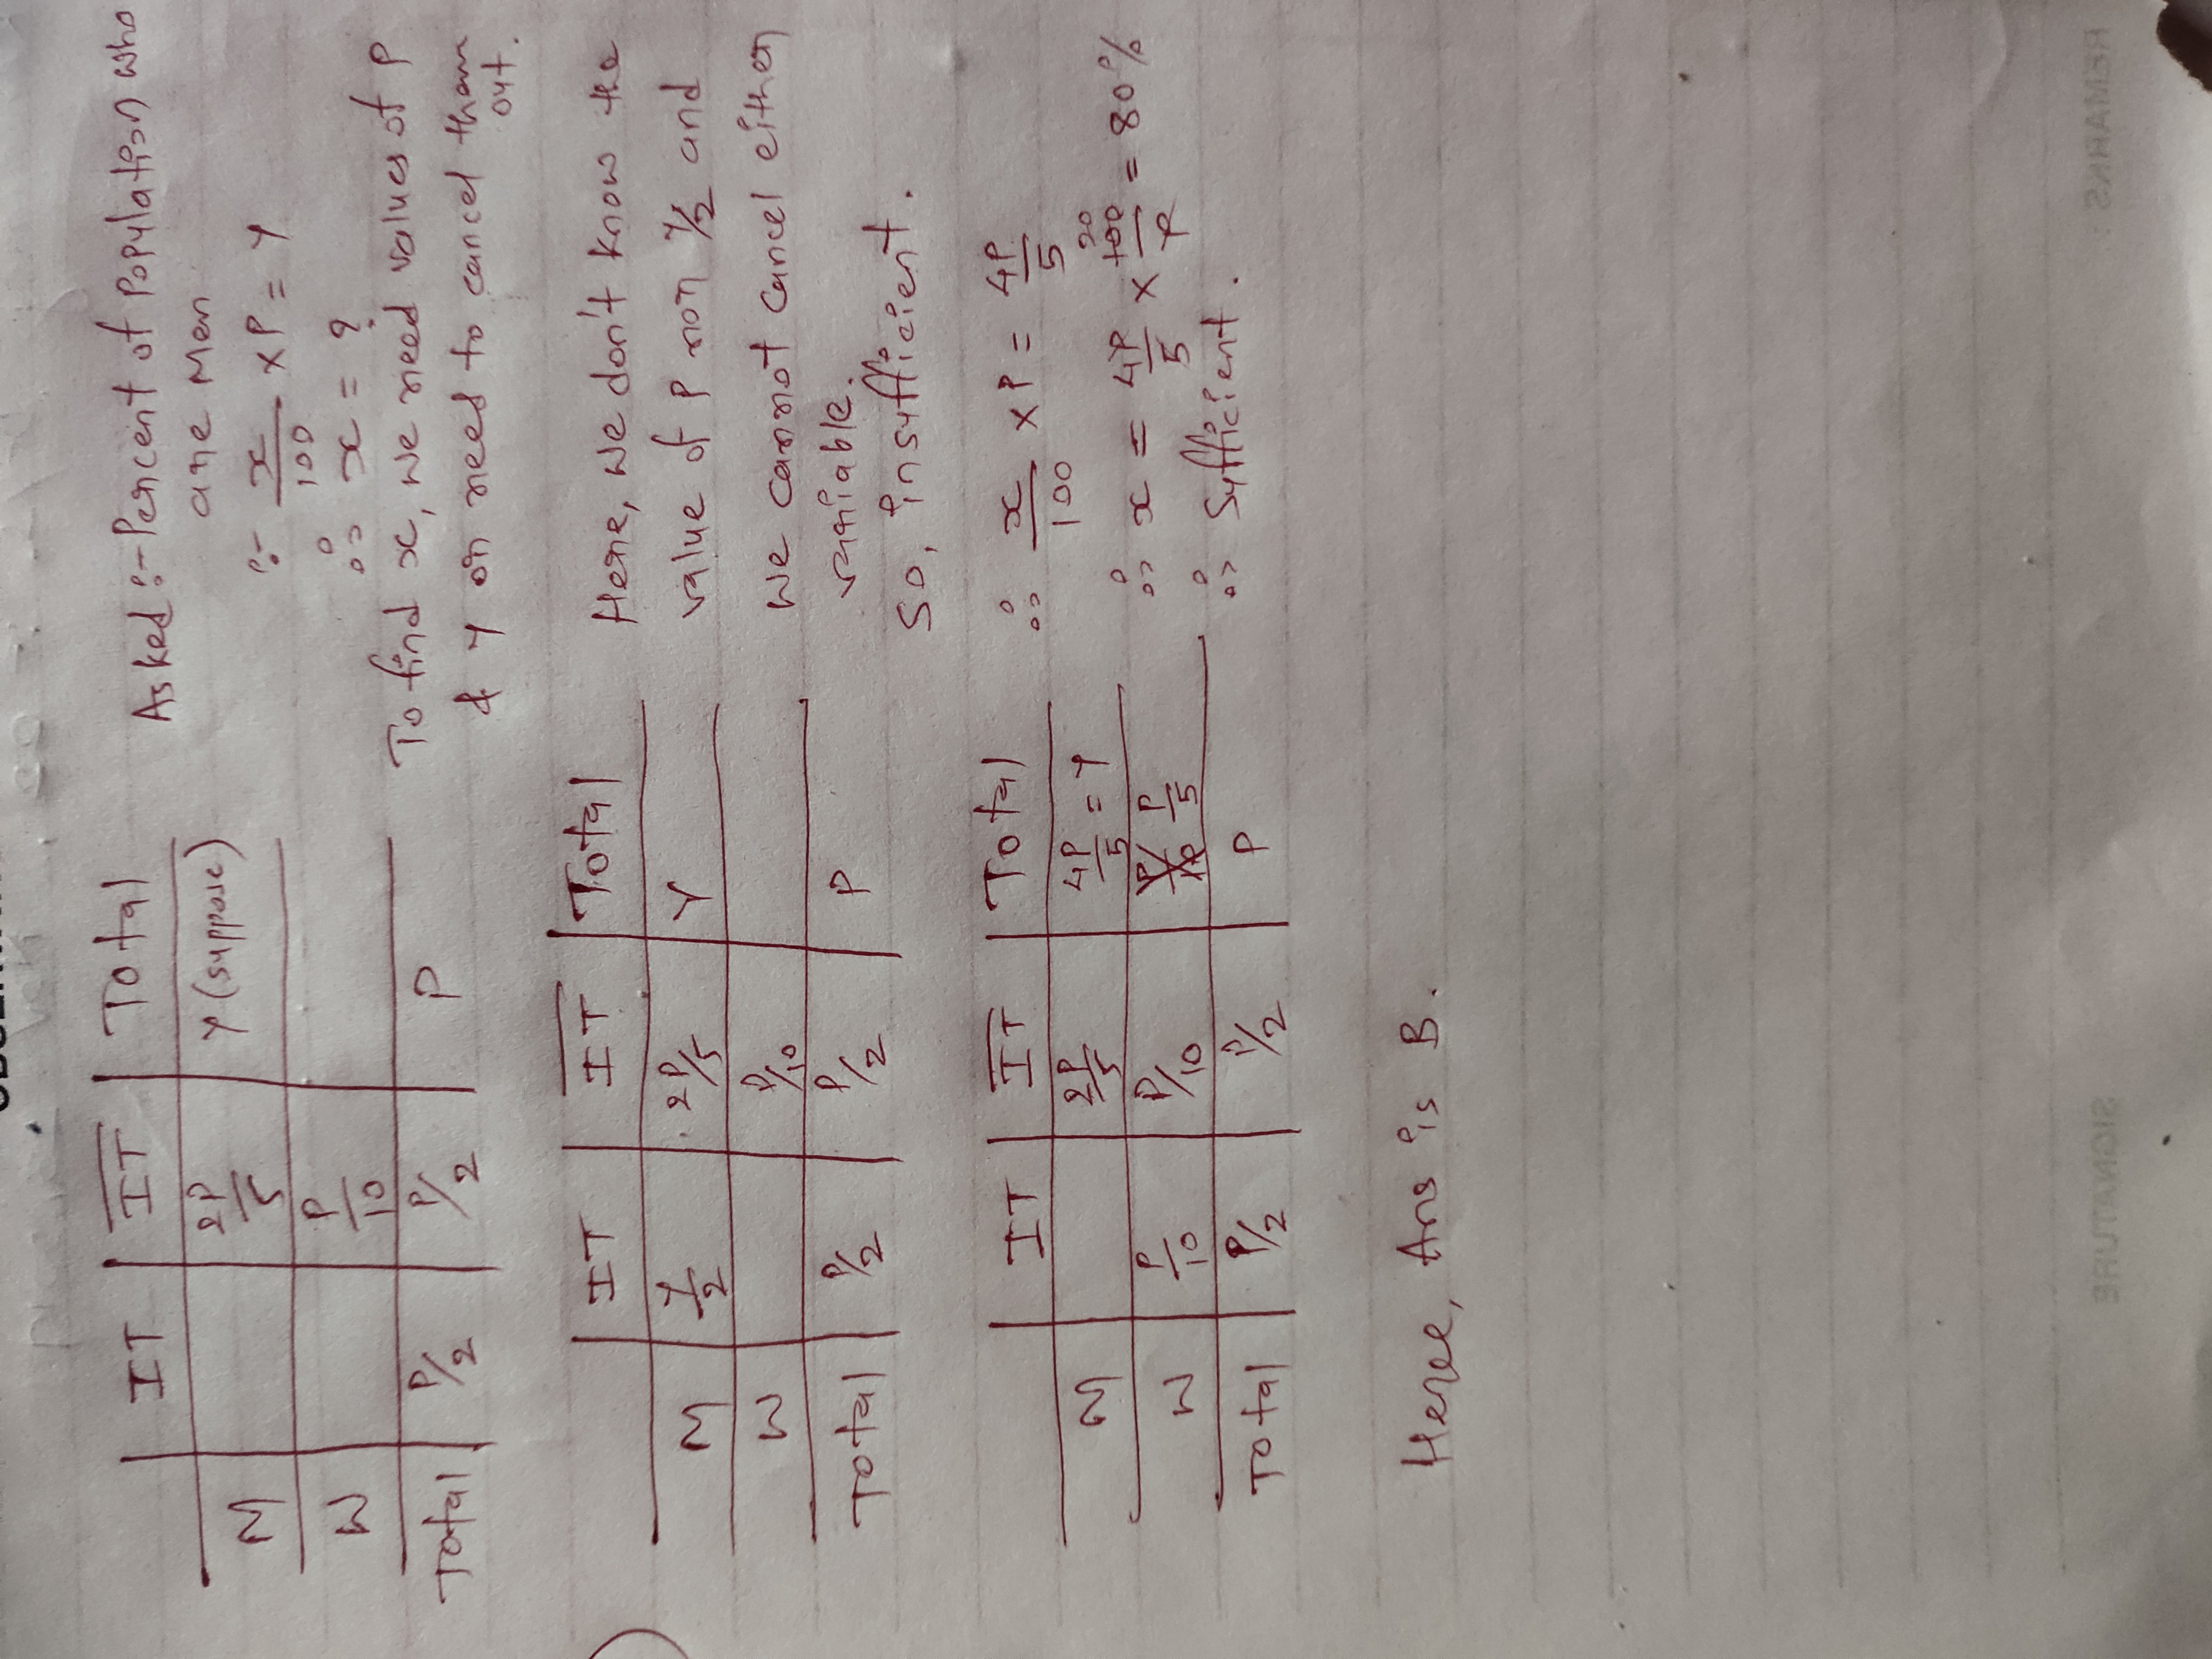 IT | I̅T̅ | Total
M | | 2P/5 | Y (suppose)
W | | P/10 |
Total | P/2 | P/2 | P
Asked :- Percent of Population who
are Men
:- x/100 × P = Y
∴ x = ?
To find x, we need values of P
& Y or need to cancel them
out.
IT | I̅T̅ | Total
M | Y/2 | 2P/5 | Y
W | | P/10 |
Total | P/2 | P/2 | P
Here, we don't know the
value of P nor Y/2 and
we cannot cancel either
variable.
So, insufficient.
IT | I̅T̅ | Total
M | | 2P/5 | 4P/5 = Y
W | P/10 | P/10 | P/5
Total | P/2 | P/2 | P
∴ x/100 × P = 4P/5
20
∴ x = 4P/5 × 100/P = 80%
∴ Sufficient.
Here, Ans is B.
REMARKS
SIGNATURE